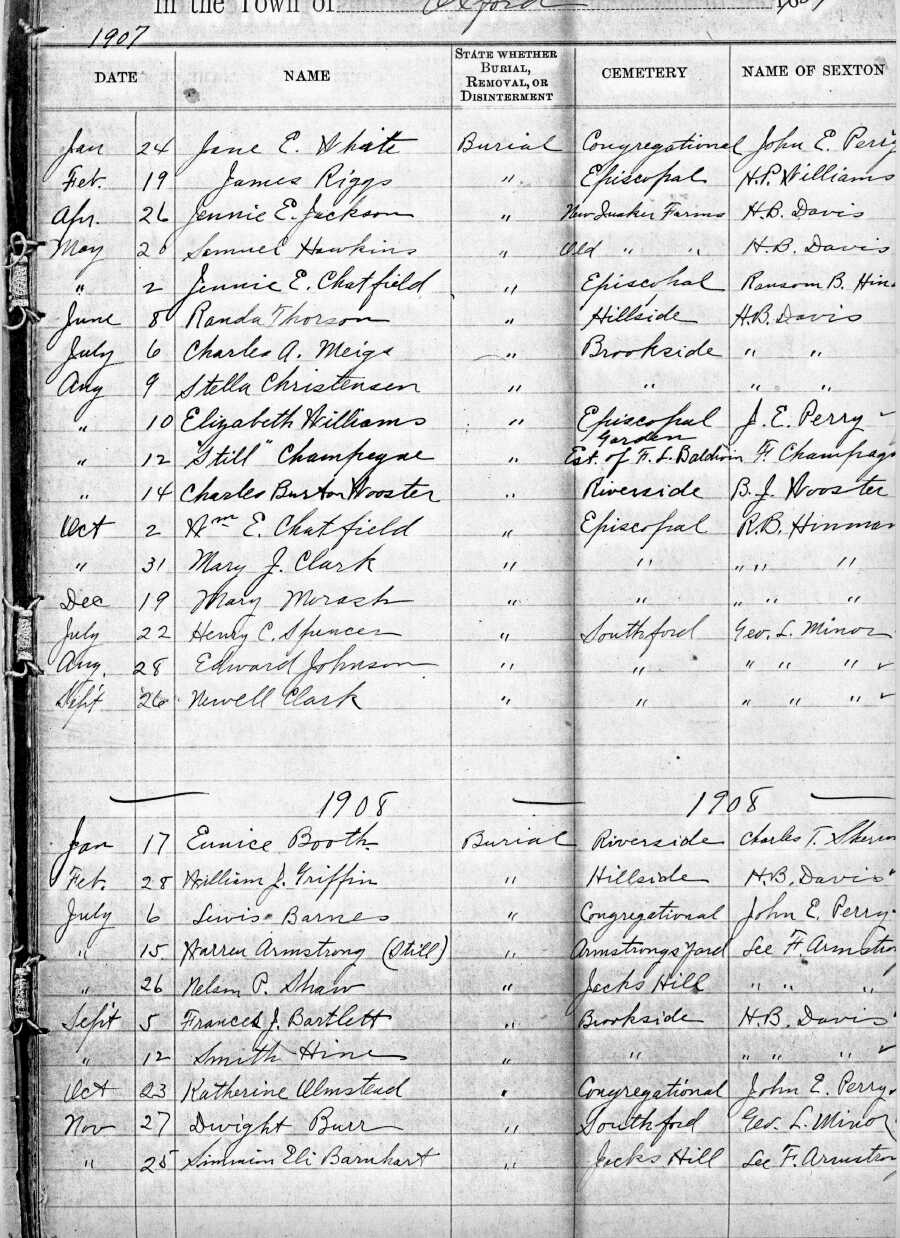 In the Town of Oxford
1907
DATE NAME STATE WHETHER BURIAL, REMOVAL, OR DISINTERMENT CEMETERY NAME OF SEXTON
Jan 24 Jane E. White Burial Congregational John E. Perry
Feb. 19 James Riggs " Episcopal H.P. Williams
Apr. 26 Jennie E. Jackson " New Quaker Farms H.B. Davis
May 20 Samuel Hawkins " Old " " H.B. Davis
" 2 Jennie E. Chatfield " Episcopal Ransom B. Hin
June 8 Randa Thorson " Hillside H.B. Davis
July 6 Charles A. Meigs " Brookside " "
Aug 9 Stella Christensen " " " "
" 10 Elizabeth Williams " Episcopal J. E. Perry
" 12 "Still" Champegne " Garden Est. of F. L. Baldwin F. Champag
" 14 Charles Burton Wooster " Riverside B. J. Wooster
Oct 2 Wm E. Chatfield " Episcopal R.B. Hinman
" 31 Mary J. Clark " " " " "
Dec 19 Mary " " " " "
July 22 Henry C. Spencer " Southford Geo. L. Minor
Aug. 28 Edward Johnson " " " " "
Sept 26 Newell Clark " " " " "
1908 1908
Jan 17 Eunice Booth Burial Riverside Charles T.
Feb. 28 William J. Griffin " Hillside H.B. Davis
July 6 Lewis Barnes " Congregational John E. Perry
" 15 Warren Armstrong (Still) " Armstrongs Yard See F. Armstron
" 26 Nelson P. Shaw " Jacks Hill " " "
Sept 5 Frances J. Bartlett " Brookside H.B. Davis
" 12 Smith Hine " " " " "
Oct 23 Katherine Olmstead " Congregational John E. Perry
Nov 27 Dwight Burr " Southford Geo. L. Minor
" 25 Eli Barnhart " Jacks Hill See F. Armstron